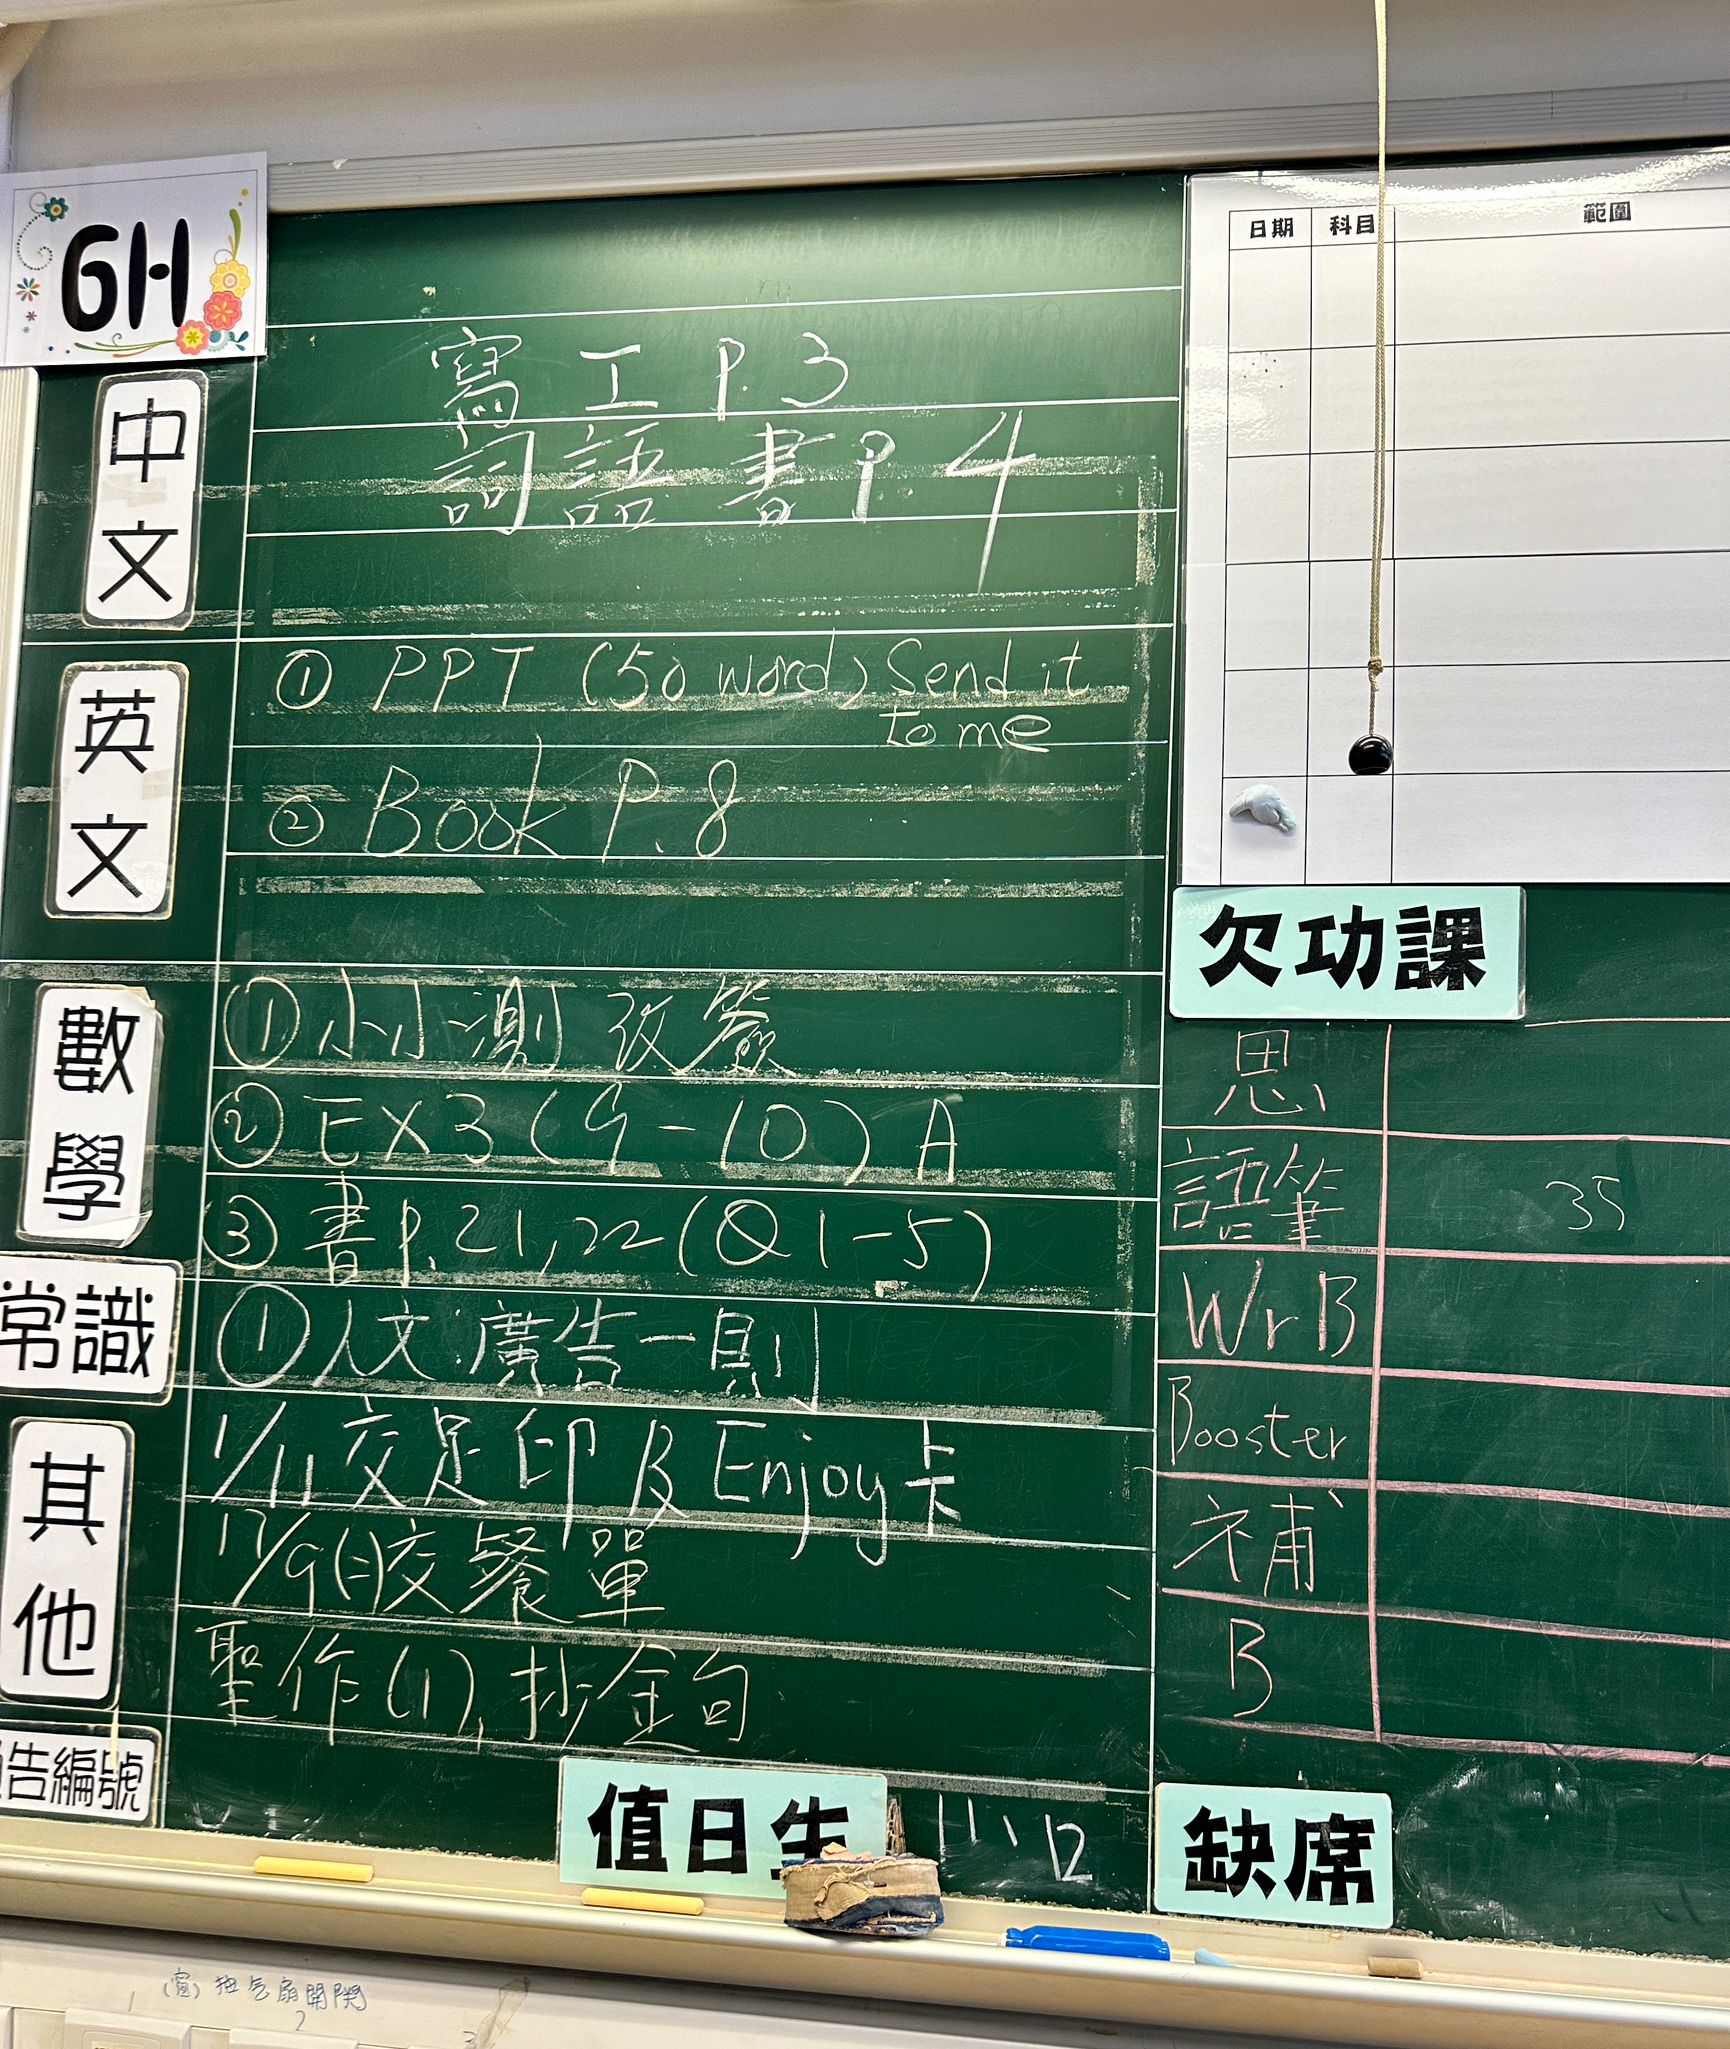 6H
中文
寫工 P.3
詞語書 P.4
英文
① PPT (50 word) Send it
to me
② Book P.8
數學
① 小小測 改簽
② EX3 (9-10) A
③ 書P.21,22 (Q1-5)
常識
① 人文:廣告一則
其他
1/11 交足印及Enjoy卡
17/9(二)交餐單
聖作(1),抄金句
告編號
值日生
11、12
日期 科目 範圍
欠功課
思
語筆 35
WrB
Booster
補
B
缺席
1
2
3